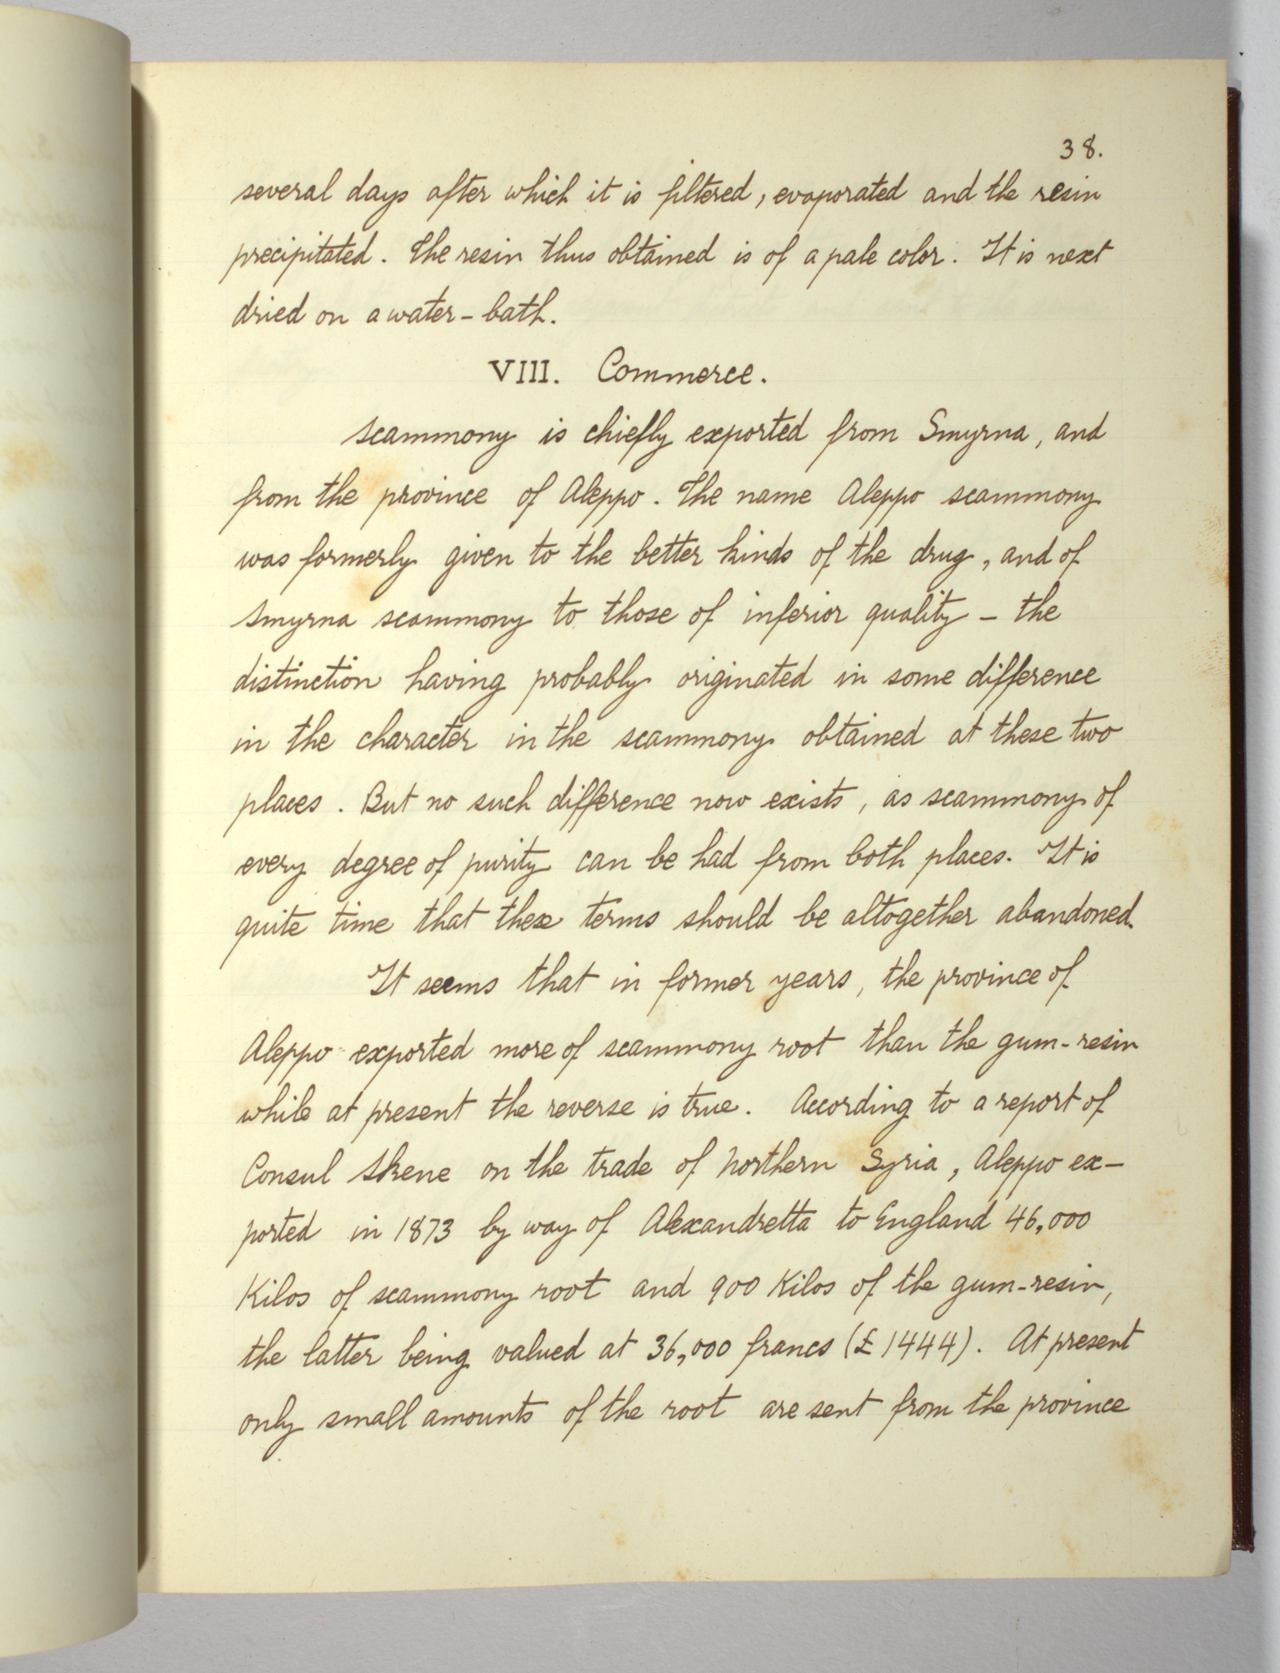 38.
several days after which it is filtered, evaporated and the resin
precipitated. The resin thus obtained is of a pale color. It is next
dried on a water-bath.
VIII. Commerce.
Scammony is chiefly exported from Smyrna, and
from the province of Aleppo. The name Aleppo scammony
was formerly given to the better kinds of the drug, and of
Smyrna scammony to those of inferior quality – the
distinction having probably originated in some difference
in the character in the scammony obtained at these two
places. But no such difference now exists, as scammony of
every degree of purity can be had from both places. It is
quite time that these terms should be altogether abandoned.
It seems that in former years, the province of
Aleppo exported more of scammony root than the gum-resin
while at present the reverse is true. According to a report of
Consul Skene on the trade of Northern Syria, Aleppo ex-
ported in 1873 by way of Alexandretta to England 46,000
Kilos of scammony root and 900 Kilos of the gum-resin,
the latter being valued at 36,000 francs (£ 1444). At present
only small amounts of the root are sent from the province